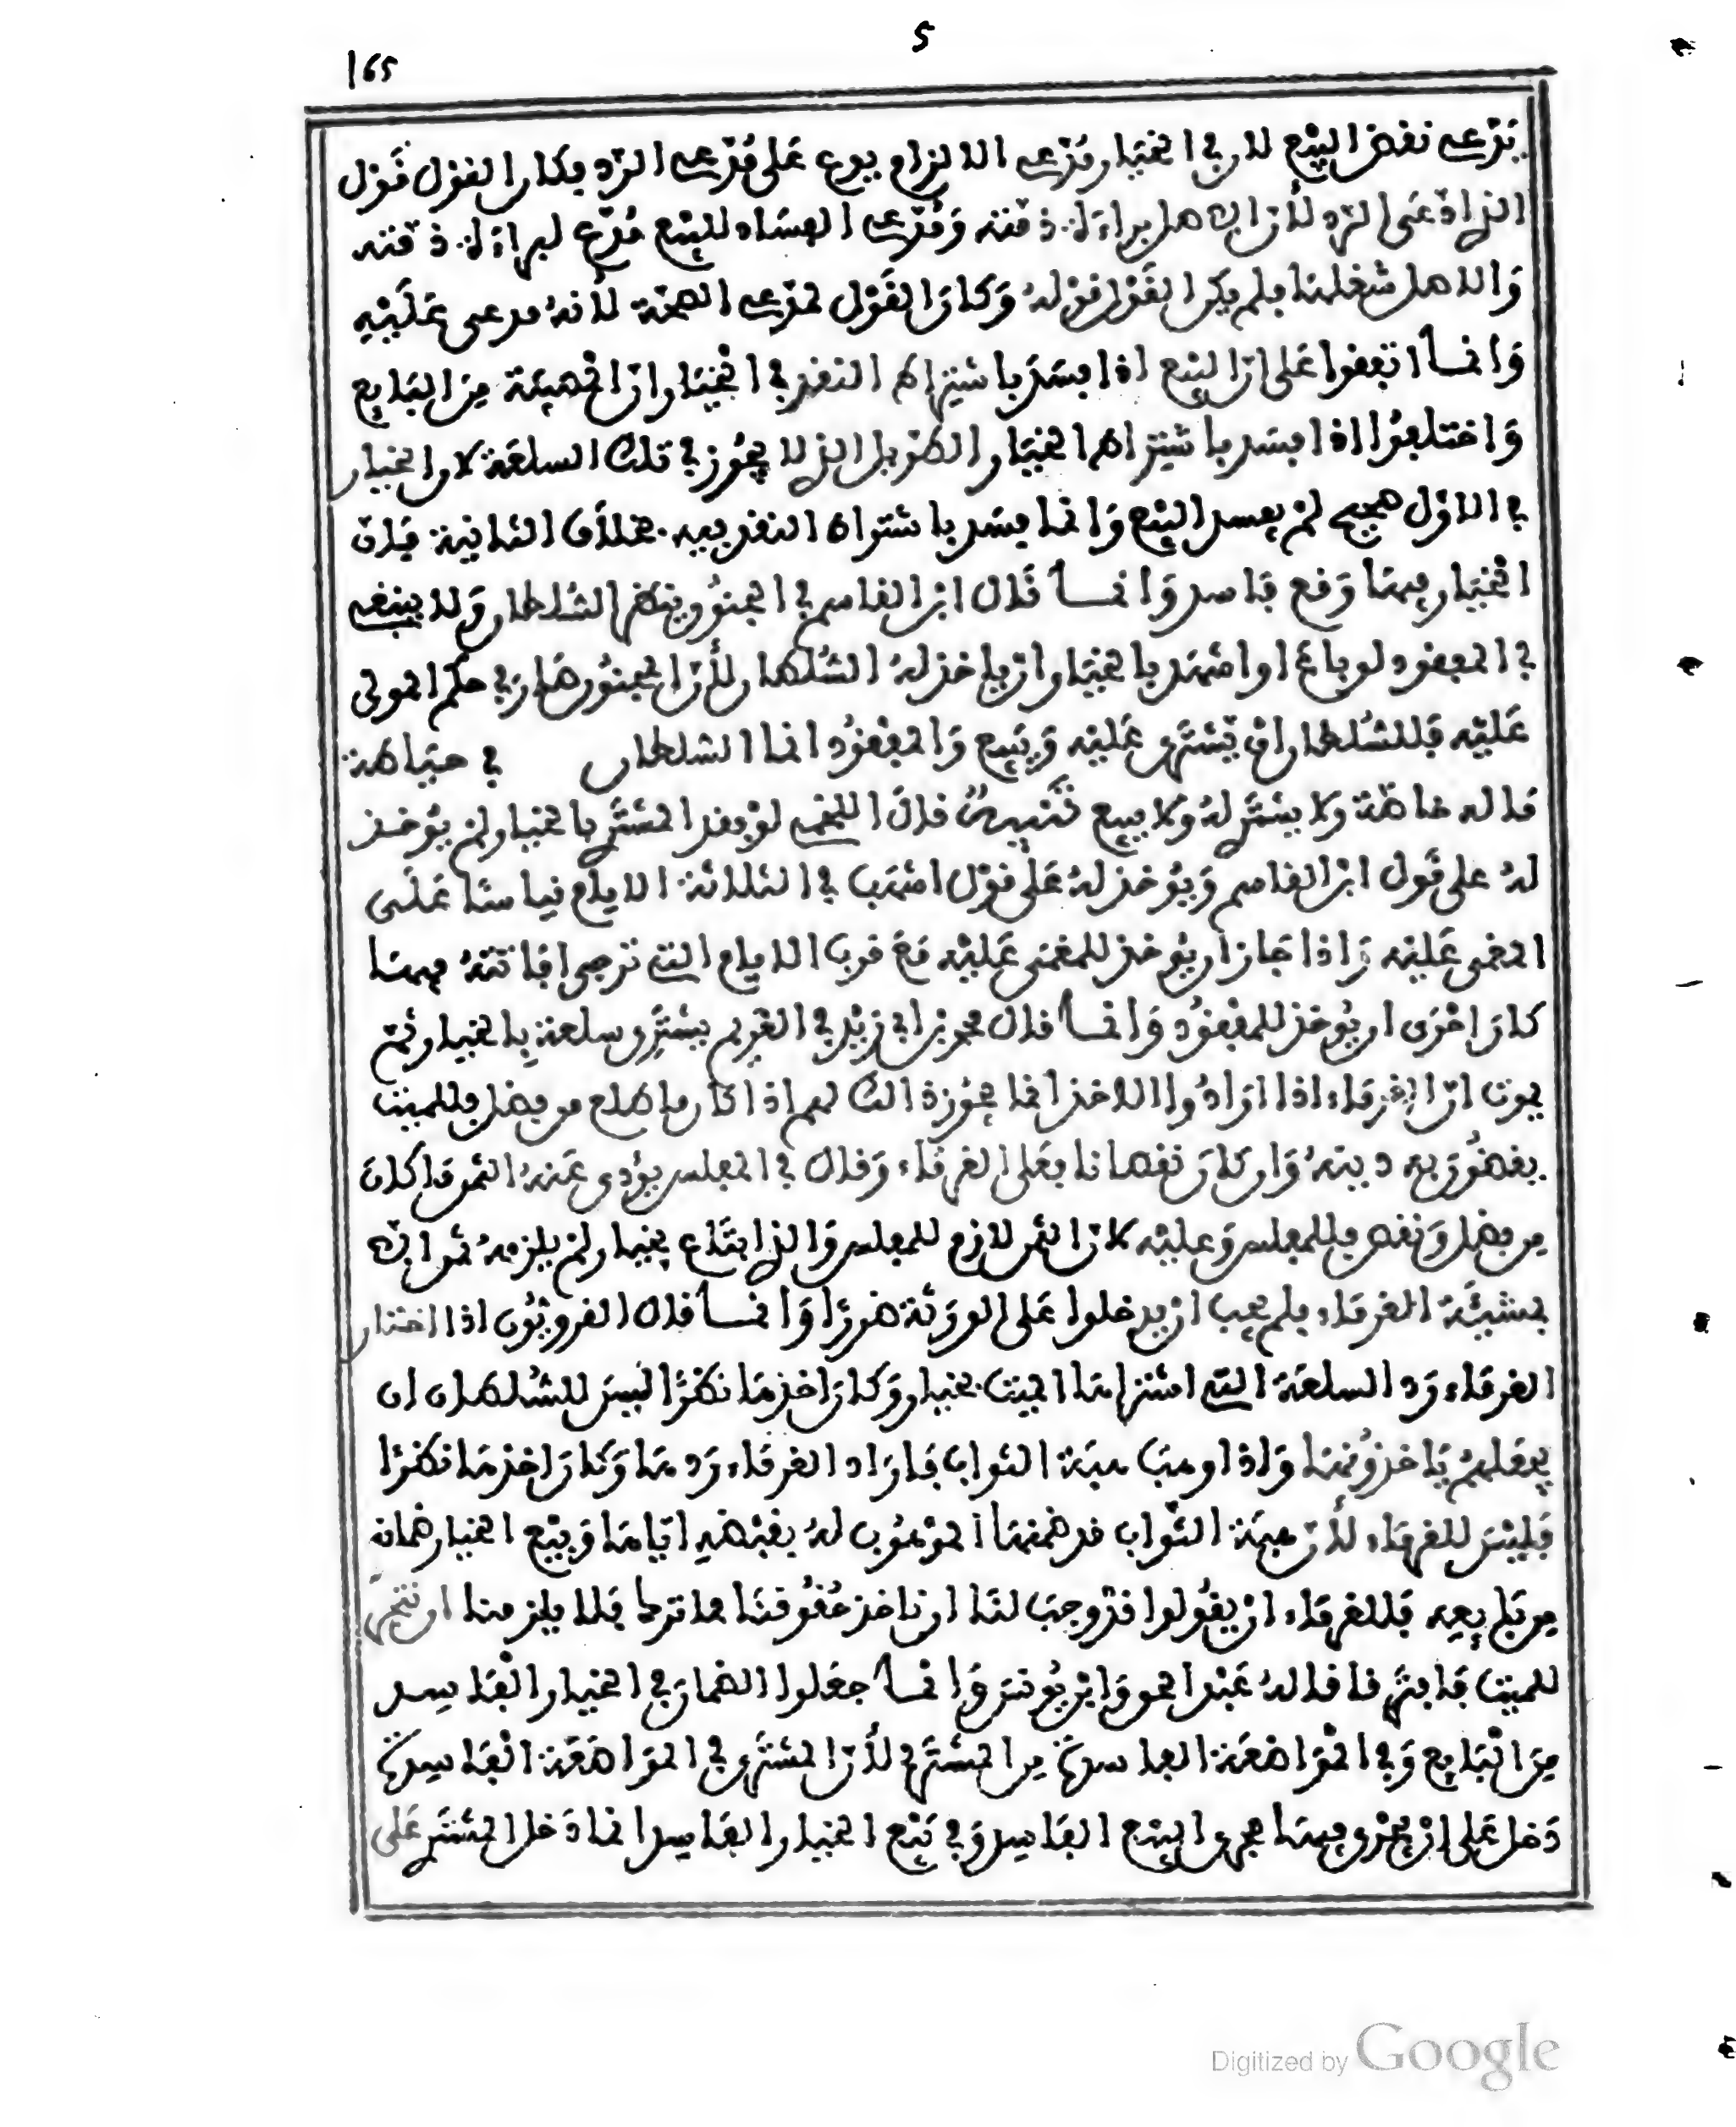 5
165
يدعى نقض البيع لان في الخيار مدعى الالزام يدع على مدعى الرد فكان القول قول
الذي ادعى الرد لأن الاصل براءة ذمته ومدعى الفساد للبيع مدع لبراءة ذمته
والاصل شغلها فلم يكن القول قوله وكان القول لمدعى الصحة لأنه مدعى عليه
وانما اتفقوا على ان البيع اذا فسد باشتراط النقد في الخيار ان المصيبة من البايع
واختلفوا اذا فسد باشتراط الخيار الطويل الذي لا يجوز في تلك السلعة لان الخيار
في الاول صحيح لم يفسد البيع وانما فسد باشتراط النقد فيه بخلاف الثانية فان
الخيار فيها وقع فاسد وانما قال ابن القاسم في المجنون ينظر السلطان ولا ينبغى
في المفقود لو باع او اشترى بالخيار ان ياخذ له السلطان لأن المجنون صار في حكم المولى
عليه فللسلطان ان يشترى عليه ويبيع والمفقود انما السلطان في حياطة
ماله خاصة ولا يشترى له ولا يبيع تنبيه قال اللخمى لو فقد المشترى بالخيار لم يوخذ
له على قول ابن القاسم ويوخذ له على قول اشهب في الثلاثة الايام قياسا على
المغمى عليه واذا جاز ان يوخذ للمغمى عليه مع قرب الايام التى ترجى افاقته فيها
كان احرى ان يوخذ للمفقود وانما قال محمد بن ابى زيد في الغريم يشترى سلعة بالخيار ثم
يموت ان الغرماء اذا ارادوا الاخذ انما يجوز ذالك لهم اذا كان ما طلع من فضل فللميت
يقضون به دينه وان كان نقصانا فعلى الغرماء وقال في المفلس يؤدى عنه الثمن فما كان
من فضل ونقص فللمفلس وعليه لان الثمن لازم للمفلس والذي ابتاع بخيار لم يلزمه ثمن الا
بمشيئة الغرماء فلم يجب ان يدخلوا على الورثة ضررا وانما قال الفرويون اذا اختار
الغرماء رد السلعة التى اشتراها الميت بخيار وكان اخذها نظرا ليس للسلطان ان
يوقفهم ياخذونها واذا وهب هبة الثواب فاراد الغرماء ردها وكان اخذها نظرا
فليس للغرماء لأن هبة الثواب قد ضمنها الموهوب له بقبضه اياها وبيع الخيار ضمانه
من بايعه فللغرماء ان يقولوا قد وجب لنا ان ناخذ حقوقنا مما ترك فلا يلزمنا ان نتجر
للميت فافترقا قاله عبد الحق وابن يونس وانما جعلوا الضمان في الخيار الفاسد
من البايع وفي المواضعة الفاسدة من المشترى لأن المشترى في المواضعة الفاسدة
دخل على ان يجرى فيها مجرى البيع الفاسد وفي بيع الخيار الفاسد انما دخل المشترى على
Digitized by Google